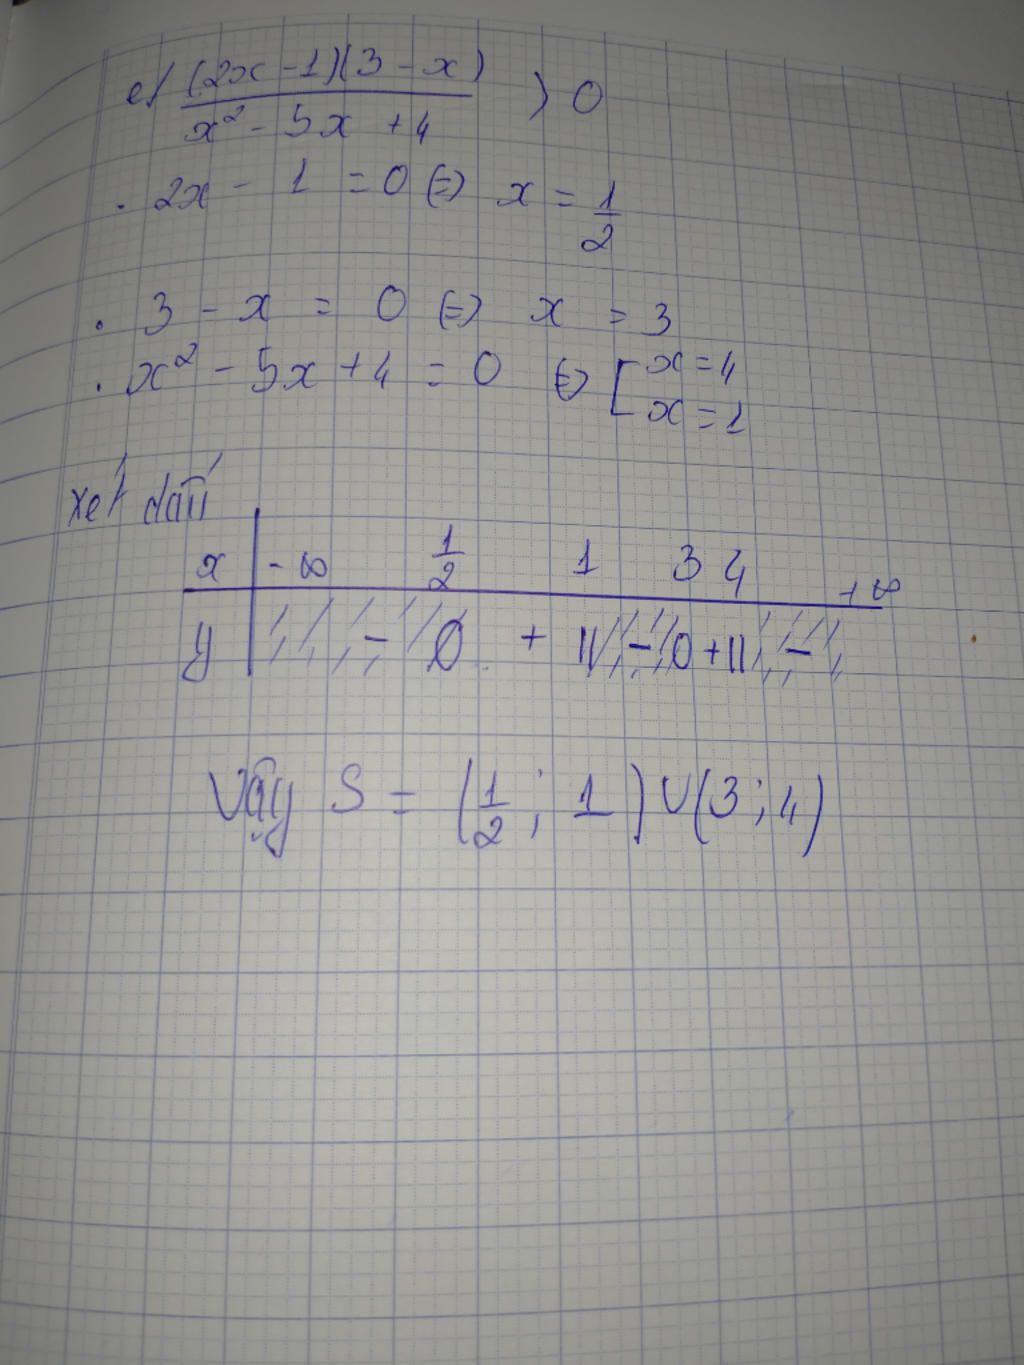 e/ (2x - 1)(3 - x) / x² - 5x + 4 > 0
. 2x - 1 = 0 (=) x = 1/2
. 3 - x = 0 (=) x = 3
. x² - 5x + 4 = 0 (=) [ x = 4
x = 1
xét dấu
x | -∞ 1/2 1 3 4 +∞
y | - 0 + || - 0 + || -
Vậy S = (1/2 ; 1) U (3 ; 4)